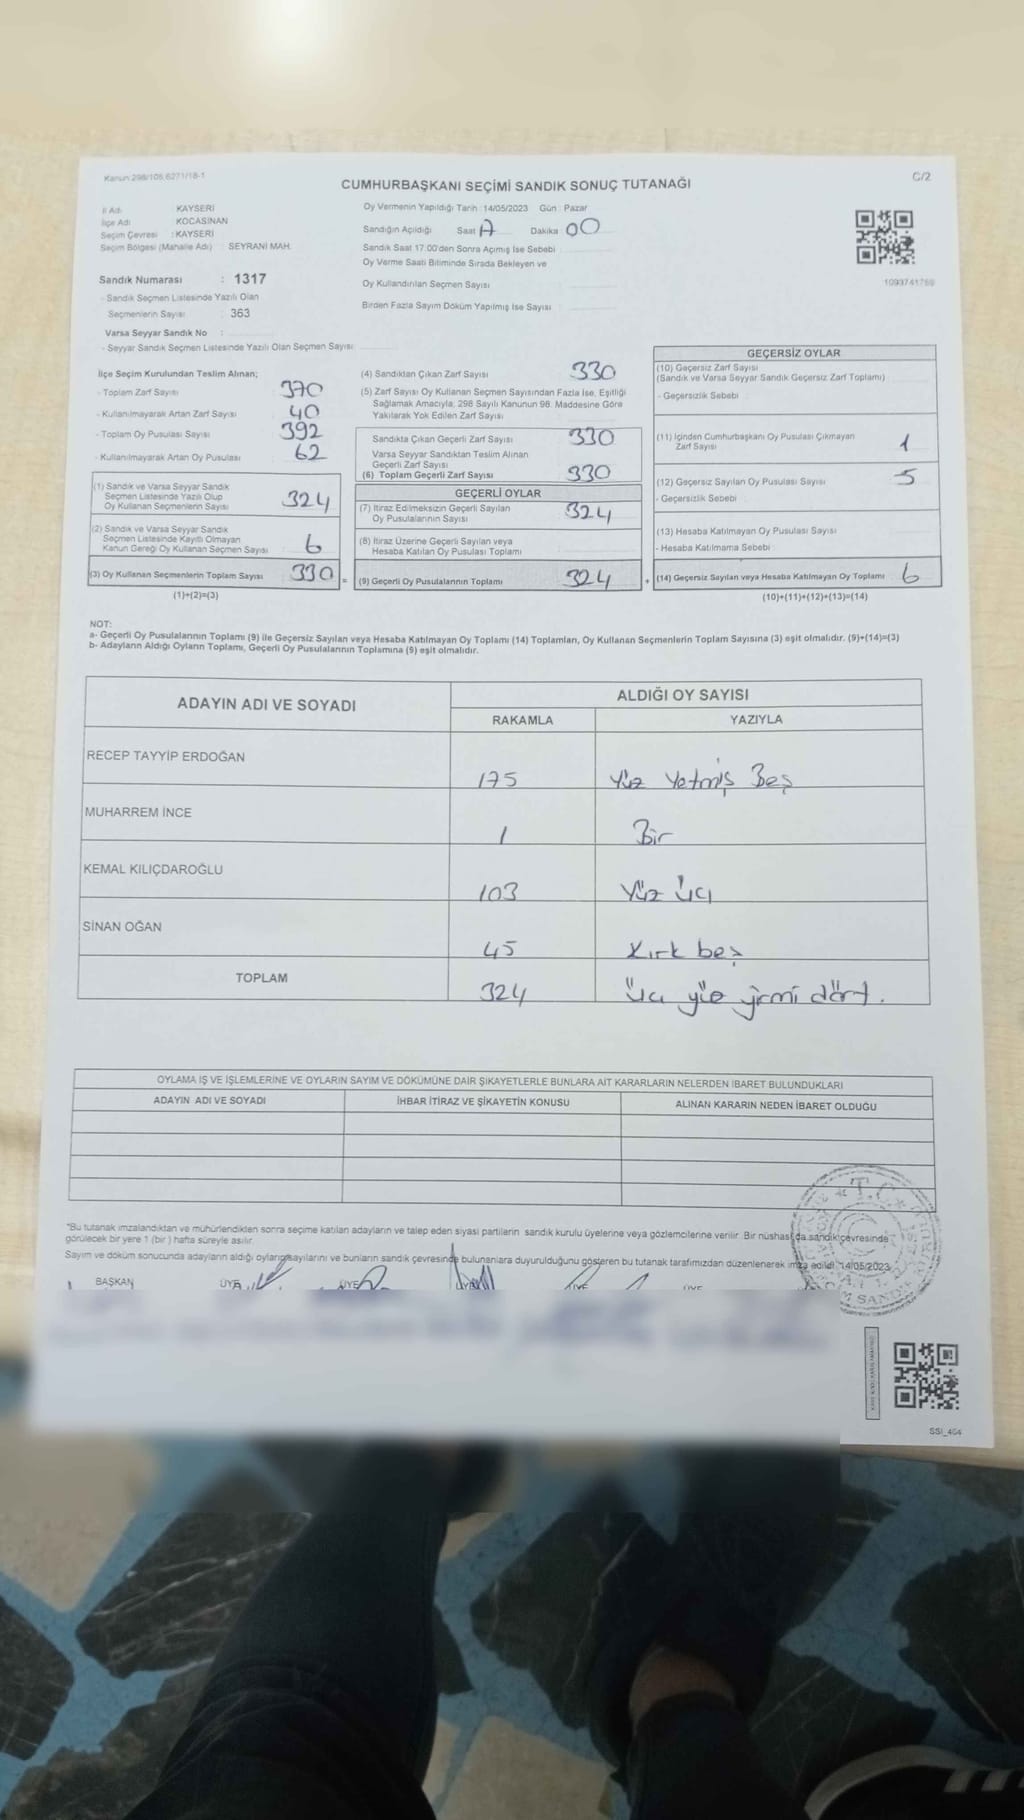 Kanun:298/105,6271/18-1
C/2
CUMHURBAŞKANI SEÇİMİ SANDIK SONUÇ TUTANAĞI
İl Adı KAYSERİ
İlçe Adı KOCASİNAN
Seçim Çevresi : KAYSERİ
Seçim Bölgesi (Mahalle Adı) : SEYRANİ MAH.
Sandık Numarası : 1317
- Sandık Seçmen Listesinde Yazılı Olan
Seçmenlerin Sayısı 363
Varsa Seyyar Sandık No :
- Seyyar Sandık Seçmen Listesinde Yazılı Olan Seçmen Sayısı
Oy Vermenin Yapıldığı Tarih :14/05/2023 Gün : Pazar
Sandığın Açıldığı Saat Dakika 00
Sandık Saat 17.00'den Sonra Açımış İse Sebebi
Oy Verme Saati Bitiminde Sırada Bekleyen ve
Oy Kullandırılan Seçmen Sayısı
Birden Fazla Sayım Döküm Yapılmış İse Sayısı
1093741759
İlçe Seçim Kurulundan Teslim Alınan;
- Toplam Zarf Sayısı 370
- Kullanılmayarak Artan Zarf Sayısı 40
- Toplam Oy Pusulası Sayısı 392
- Kullanılmayarak Artan Oy Pusulası 62
(1) Sandık ve Varsa Seyyar Sandık
Seçmen Listesinde Yazılı Olup
Oy Kullanan Seçmenlerin Sayısı 324
(2) Sandık ve Varsa Seyyar Sandık
Seçmen Listesinde Kayıtlı Olmayan
Kanun Gereği Oy Kullanan Seçmen Sayısı 6
(3) Oy Kullanan Seçmenlerin Toplam Sayısı 330 =
(1)+(2)=(3)
(4) Sandıktan Çıkan Zarf Sayısı 330
(5) Zarf Sayısı Oy Kullanan Seçmen Sayısından Fazla İse, Eşitliği
Sağlamak Amacıyla, 298 Sayılı Kanunun 98. Maddesine Göre
Yakılarak Yok Edilen Zarf Sayısı
Sandıkta Çıkan Geçerli Zarf Sayısı 330
Varsa Seyyar Sandıktan Teslim Alınan
Geçerli Zarf Sayısı
(6) Toplam Geçerli Zarf Sayısı 330
GEÇERLİ OYLAR
(7) İtiraz Edilmeksizin Geçerli Sayılan
Oy Pusulalarının Sayısı 324
(8) İtiraz Üzerine Geçerli Sayılan veya
Hesaba Katılan Oy Pusulası Toplamı
(9) Geçerli Oy Pusulalarının Toplamı 324 +
GEÇERSİZ OYLAR
(10) Geçersiz Zarf Sayısı
(Sandık ve Varsa Seyyar Sandık Geçersiz Zarf Toplamı)
- Geçersizlik Sebebi
(11) İçinden Cumhurbaşkanı Oy Pusulası Çıkmayan
Zarf Sayısı 1
(12) Geçersiz Sayılan Oy Pusulası Sayısı 5
- Geçersizlik Sebebi
(13) Hesaba Katılmayan Oy Pusulası Sayısı
- Hesaba Katılmama Sebebi
(14) Geçersiz Sayılan veya Hesaba Katılmayan Oy Toplamı 6
(10)+(11)+(12)+(13)=(14)
NOT:
a- Geçerli Oy Pusulalarının Toplamı (9) ile Geçersiz Sayılan veya Hesaba Katılmayan Oy Toplamı (14) Toplamları, Oy Kullanan Seçmenlerin Toplam Sayısına (3) eşit olmalıdır. (9)+(14)=(3)
b- Adayların Aldığı Oyların Toplamı, Geçerli Oy Pusulalarının Toplamına (9) eşit olmalıdır.
ADAYIN ADI VE SOYADI
ALDIĞI OY SAYISI
RAKAMLA YAZIYLA
RECEP TAYYİP ERDOĞAN 175 Yüz Yetmiş Beş
MUHARREM İNCE 1 Bir
KEMAL KILIÇDAROĞLU 103 Yüz üç
SİNAN OĞAN 45 Kırk beş
TOPLAM 324 üç yüz yirmi dört.
OYLAMA İŞ VE İŞLEMLERİNE VE OYLARIN SAYIM VE DÖKÜMÜNE DAİR ŞİKAYETLERLE BUNLARA AİT KARARLARIN NELERDEN İBARET BULUNDUKLARI
ADAYIN ADI VE SOYADI İHBAR İTİRAZ VE ŞİKAYETİN KONUSU ALINAN KARARIN NEDEN İBARET OLDUĞU
"Bu tutanak imzalandıktan ve mühürlendikten sonra seçime katılan adayların ve talep eden siyasi partilerin sandık kurulu üyelerine veya gözlemcilerine verilir. Bir nüshası da sandık çevresinde
görülecek bir yere 1 (bir ) hafta süreyle asılır.
Sayım ve döküm sonucunda adayların aldığı oyların sayılarını ve bunların sandık çevresinde bulunanlara duyurulduğunu gösteren bu tutanak tarafımızdan düzenlenerek imza edildi. 14/05/2023
BAŞKAN ÜYE ÜYE ÜYE ÜYE ÜYE
T.C.
SSİ_464